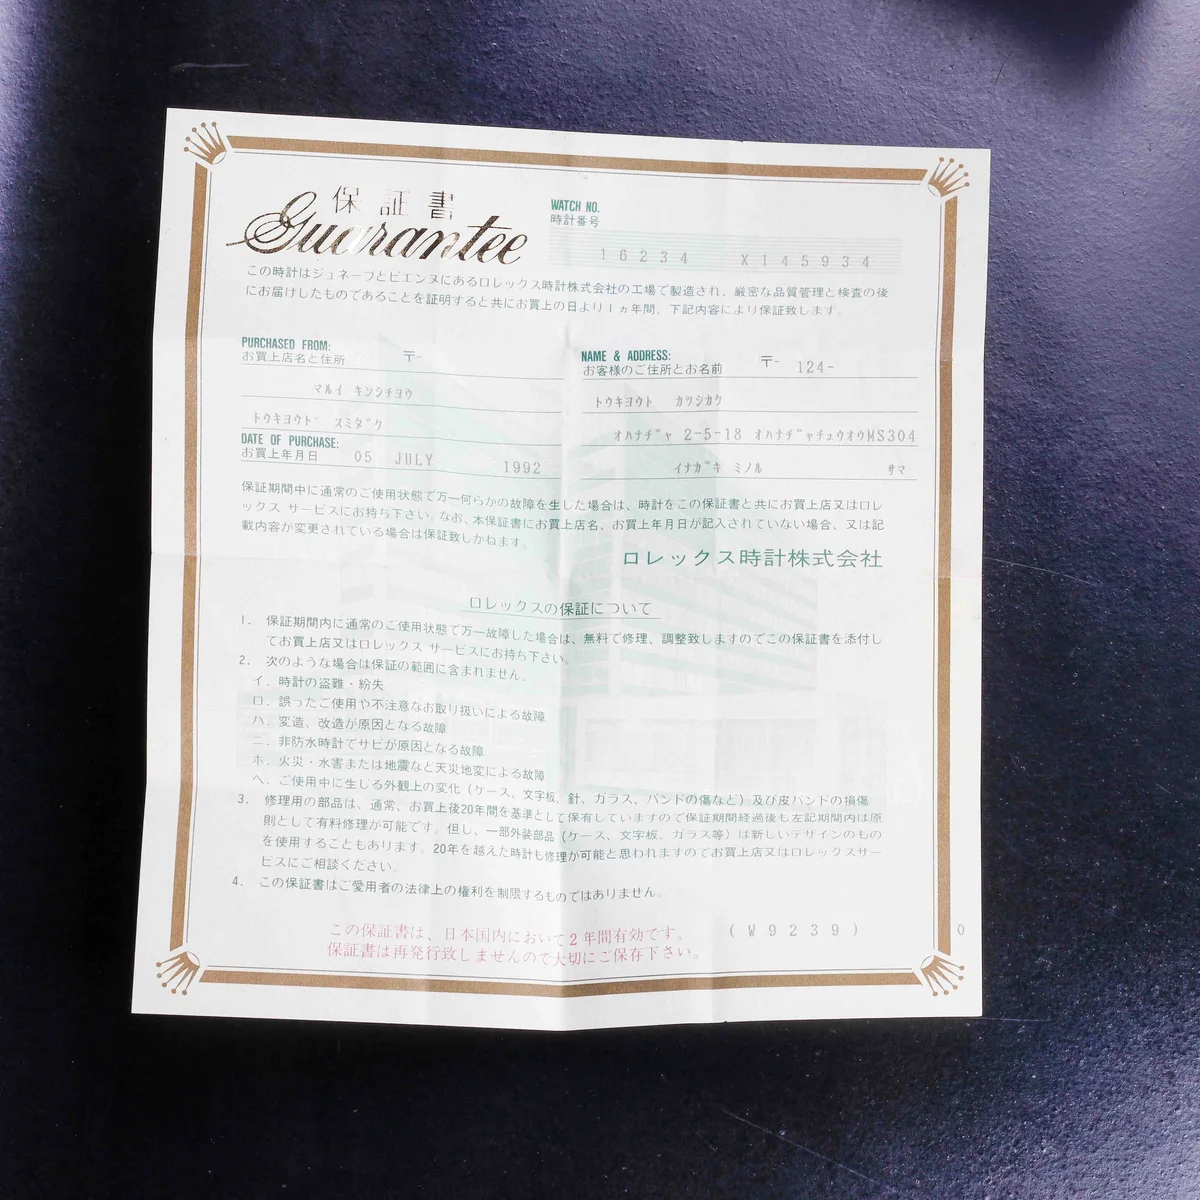 保証書
Guarantee
WATCH NO.
時計番号
16234 X145934
この時計はジュネーブとビエンヌにあるロレックス時計株式会社の工場で製造され、厳密な品質管理と検査の後
にお届けしたものであることを証明すると共にお買上の日より1ヵ年間、下記内容により保証致します。
PURCHASED FROM:
お買上店名と住所 〒-
マルイ キンシチヨウ
トウキヨウト゛ スミダ゛ク
DATE OF PURCHASE:
お買上年月日 05 JULY 1992
NAME & ADDRESS:
お客様のご住所とお名前 〒- 124-
トウキヨウト カツシカク
オハナヂヤ 2-5-18 オハナヂヤチュウオウMS304
イナガキ ミノル サマ
保証期間中に通常のご使用状態で万一何らかの故障を生した場合は、時計をこの保証書と共にお買上店又はロレ
ックス サービスにお持ち下さい。なお、本保証書にお買上店名、お買上年月日が記入されていない場合、又は記
載内容が変更されている場合は保証致しかねます。
ロレックス時計株式会社
ロレックスの保証について
1. 保証期間内に通常のご使用状態で万一故障した場合は、無料で修理、調整致しますのでこの保証書を添付し
てお買上店又はロレックス サービスにお持ち下さい。
2. 次のような場合は保証の範囲に含まれません。
イ. 時計の盗難・紛失
ロ. 誤ったご使用や不注意なお取り扱いによる故障
ハ. 変造、改造が原因となる故障
ニ. 非防水時計でサビが原因となる故障
ホ. 火災・水害または地震など天災地変による故障
ヘ. ご使用中に生じる外観上の変化（ケース、文字板、針、ガラス、バンドの傷など）及び皮バンドの損傷
3. 修理用の部品は、通常、お買上後20年間を基準として保有していますので保証期間経過後も左記期間内は原
則として有料修理が可能です。但し、一部外装部品（ケース、文字板、ガラス等）は新しいデザインのもの
を使用することもあります。20年を越えた時計も修理が可能と思われますのでお買上店又はロレックスサー
ビスにご相談ください。
4. この保証書はご愛用者の法律上の権利を制限するものではありません。
この保証書は、日本国内において2年間有効です。
保証書は再発行致しませんので大切にご保存下さい。
(W9239) 0